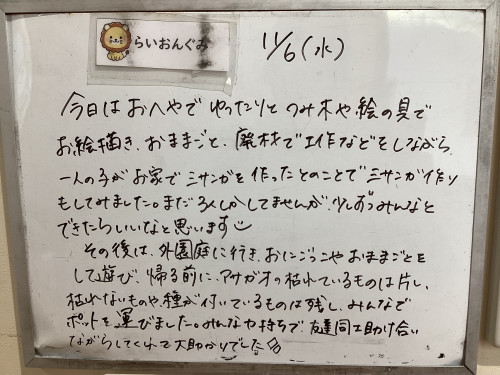 らいおんぐみ
11/6(水)
今日はおへやでゆったりとつみ木や絵の具で
お絵描き、おままごと、廃材で工作などをしながら、
一人の子がお家でミサンガを作ったとのことでミサンガ作り
もしてみました。まだ3人しかしてませんが、少しずつみんなと
できたらいいなと思います
その後は、外園庭に行き、おにごっこやおままごとを
して遊び、帰る前に、アサガオの枯れているものは片し、
枯れないものや、種が付いているものは残し、みんなで
ポットを運びました。みんな力持ちで友達同士助け合い
ながらしてくれて大助かりでした